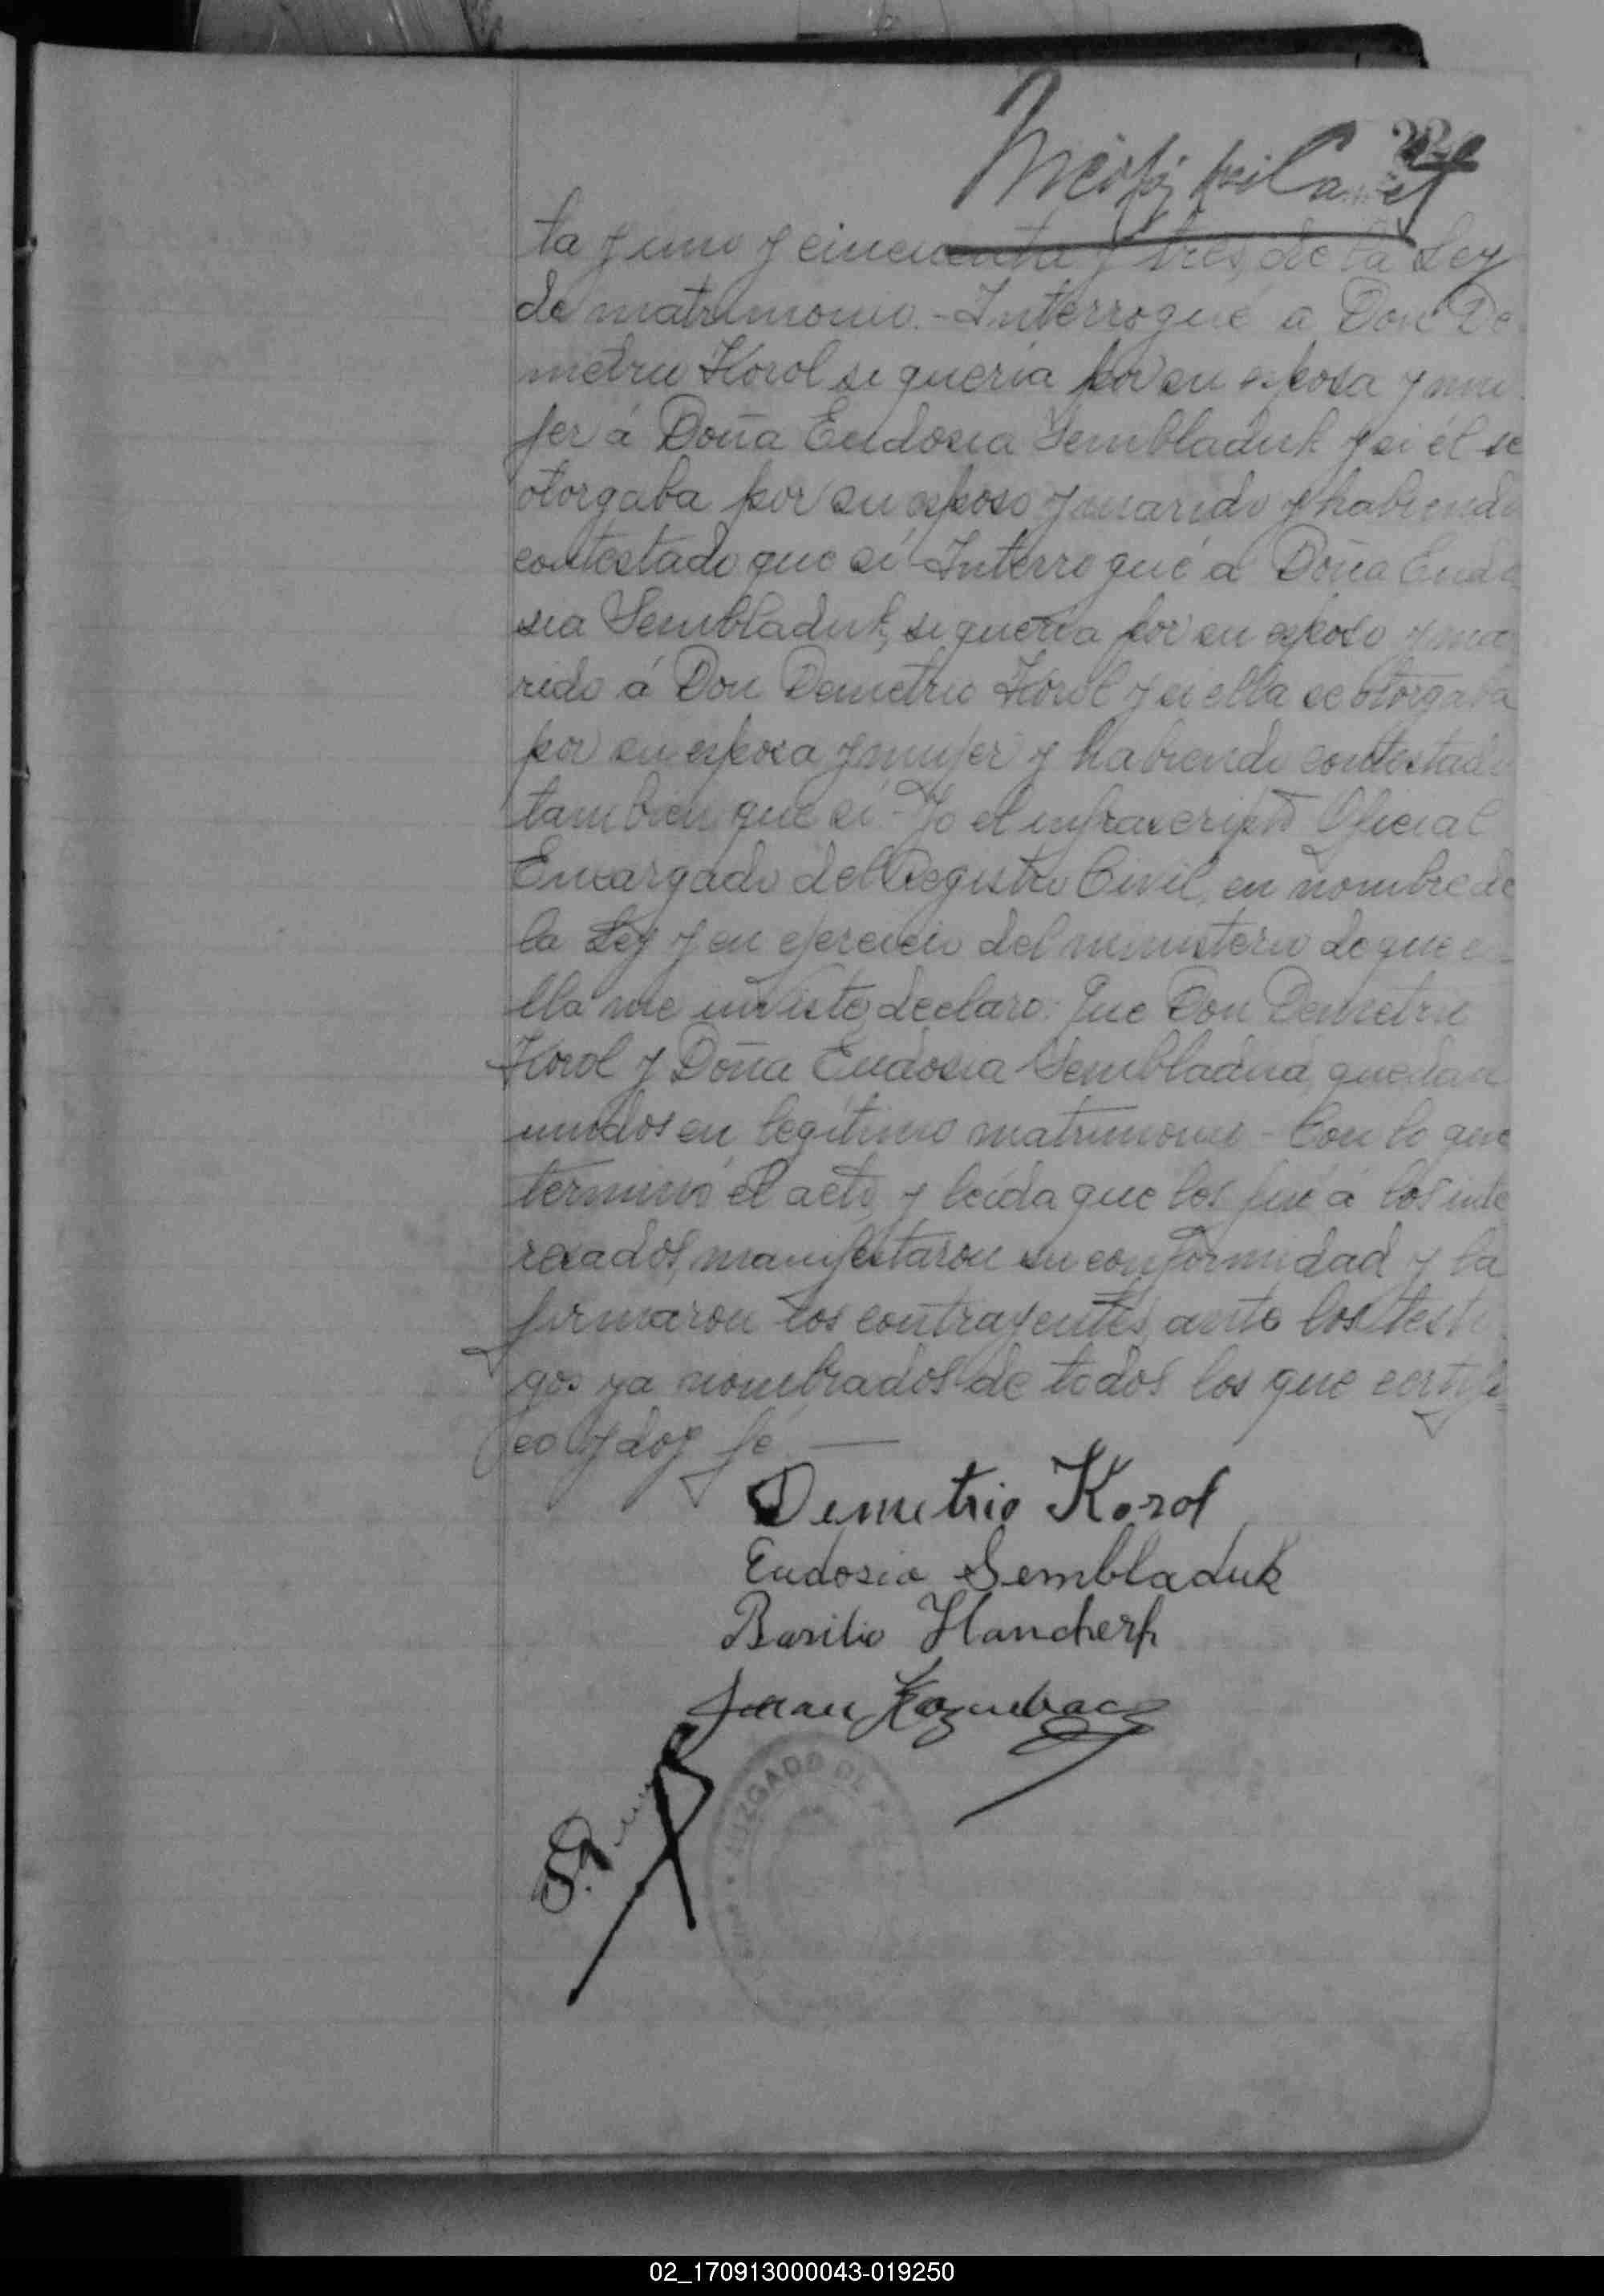 ta y uno y cincuenta y tres, de la Ley
de matrimonio.- Interrogué a Don De
metrio Korol si quería por su esposa y mu
jer á Doña Eudosia Sembladuk y si él se
otorgaba por su esposo y marido y habiendo
contestado que sí - Interrogué a Doña Eudo
sia Sembladuk, si quería por su esposo y ma
rido á Don Demetrio Korol y si ella se otorgaba
por su esposa y mujer y habiendo contestado
tambien que sí - Yo el infrascripto Oficial
Encargado del Registro Civil, en nombre de
la Ley y en ejercicio del ministerio de que e
lla me inviste, declaro: Que Don Demetrio
Korol y Doña Eudosia quedan
unidos en legítimo matrimonio - Con lo que
terminó el acto, y leída que les fué á los inte
resados, manifestaron su conformidad y la
firmaron los contrayentes, ante los testi
gos ya nombrados de todos los que certifi=
co y doy fé. —
Demetrio Korol
Eudosia Sembladuk
Basilio
Juan
JUZGADO DE
02_170913000043-019250